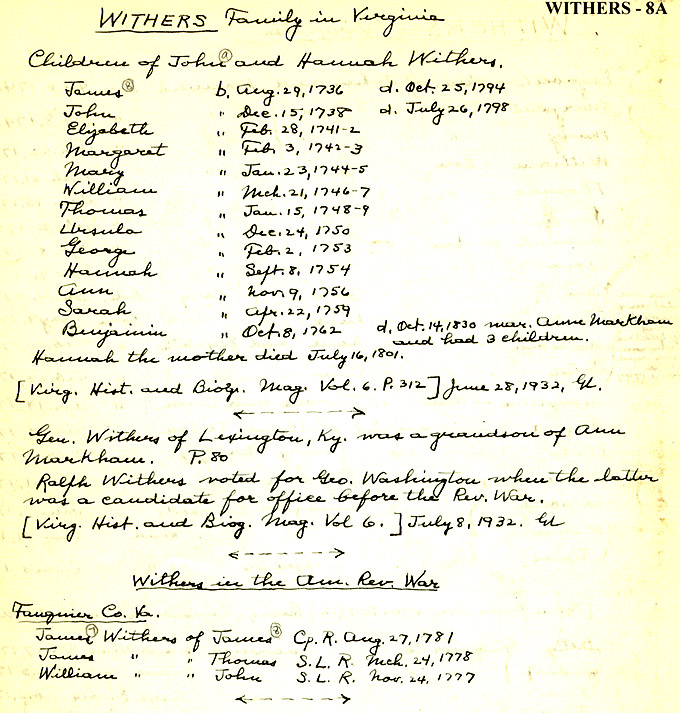 WITHERS - 8A
WITHERS Family in Virginia
Children of John and Hannah Withers.
James b. Aug. 29, 1736 d. Oct. 25, 1794
John " Dec. 15, 1738 d. July 26, 1798
Elizabeth " Feb. 28, 1741-2
Margaret " Feb. 3, 1742-3
Mary " Jan. 23, 1744-5
William " Mch. 21, 1746-7
Thomas " Jan. 15, 1748-9
Ursula " Dec. 24, 1750
George " Feb. 2, 1753
Hannah " Sept. 8, 1754
Ann " Nov. 9, 1756
Sarah " Apr. 22, 1759
Benjainin " Oct. 8, 1762 d. Oct. 14, 1830 mar. Anne Markham
and had 3 children.
Hannah the mother died July 16, 1801.
[Virg. Hist. and Biog. Mag. Vol. 6. P. 312] June 28, 1932,
Gen. Withers of Lexington, Ky. was a grandson of Ann
Markham. P. 80
Ralph Withers voted for Geo. Washington when the latter
was a candidate for office before the Rev. War.
[Virg. Hist. and Biog. Mag. Vol 6.] July 8, 1932.
Withers in the Am. Rev. War
Fauquier Co. Va.
James Withers of James Cp. R. Aug. 27, 1781
James " " Thomas S. L. R. Mch. 24, 1778
William " " John S. L. R. Nov. 24, 1777